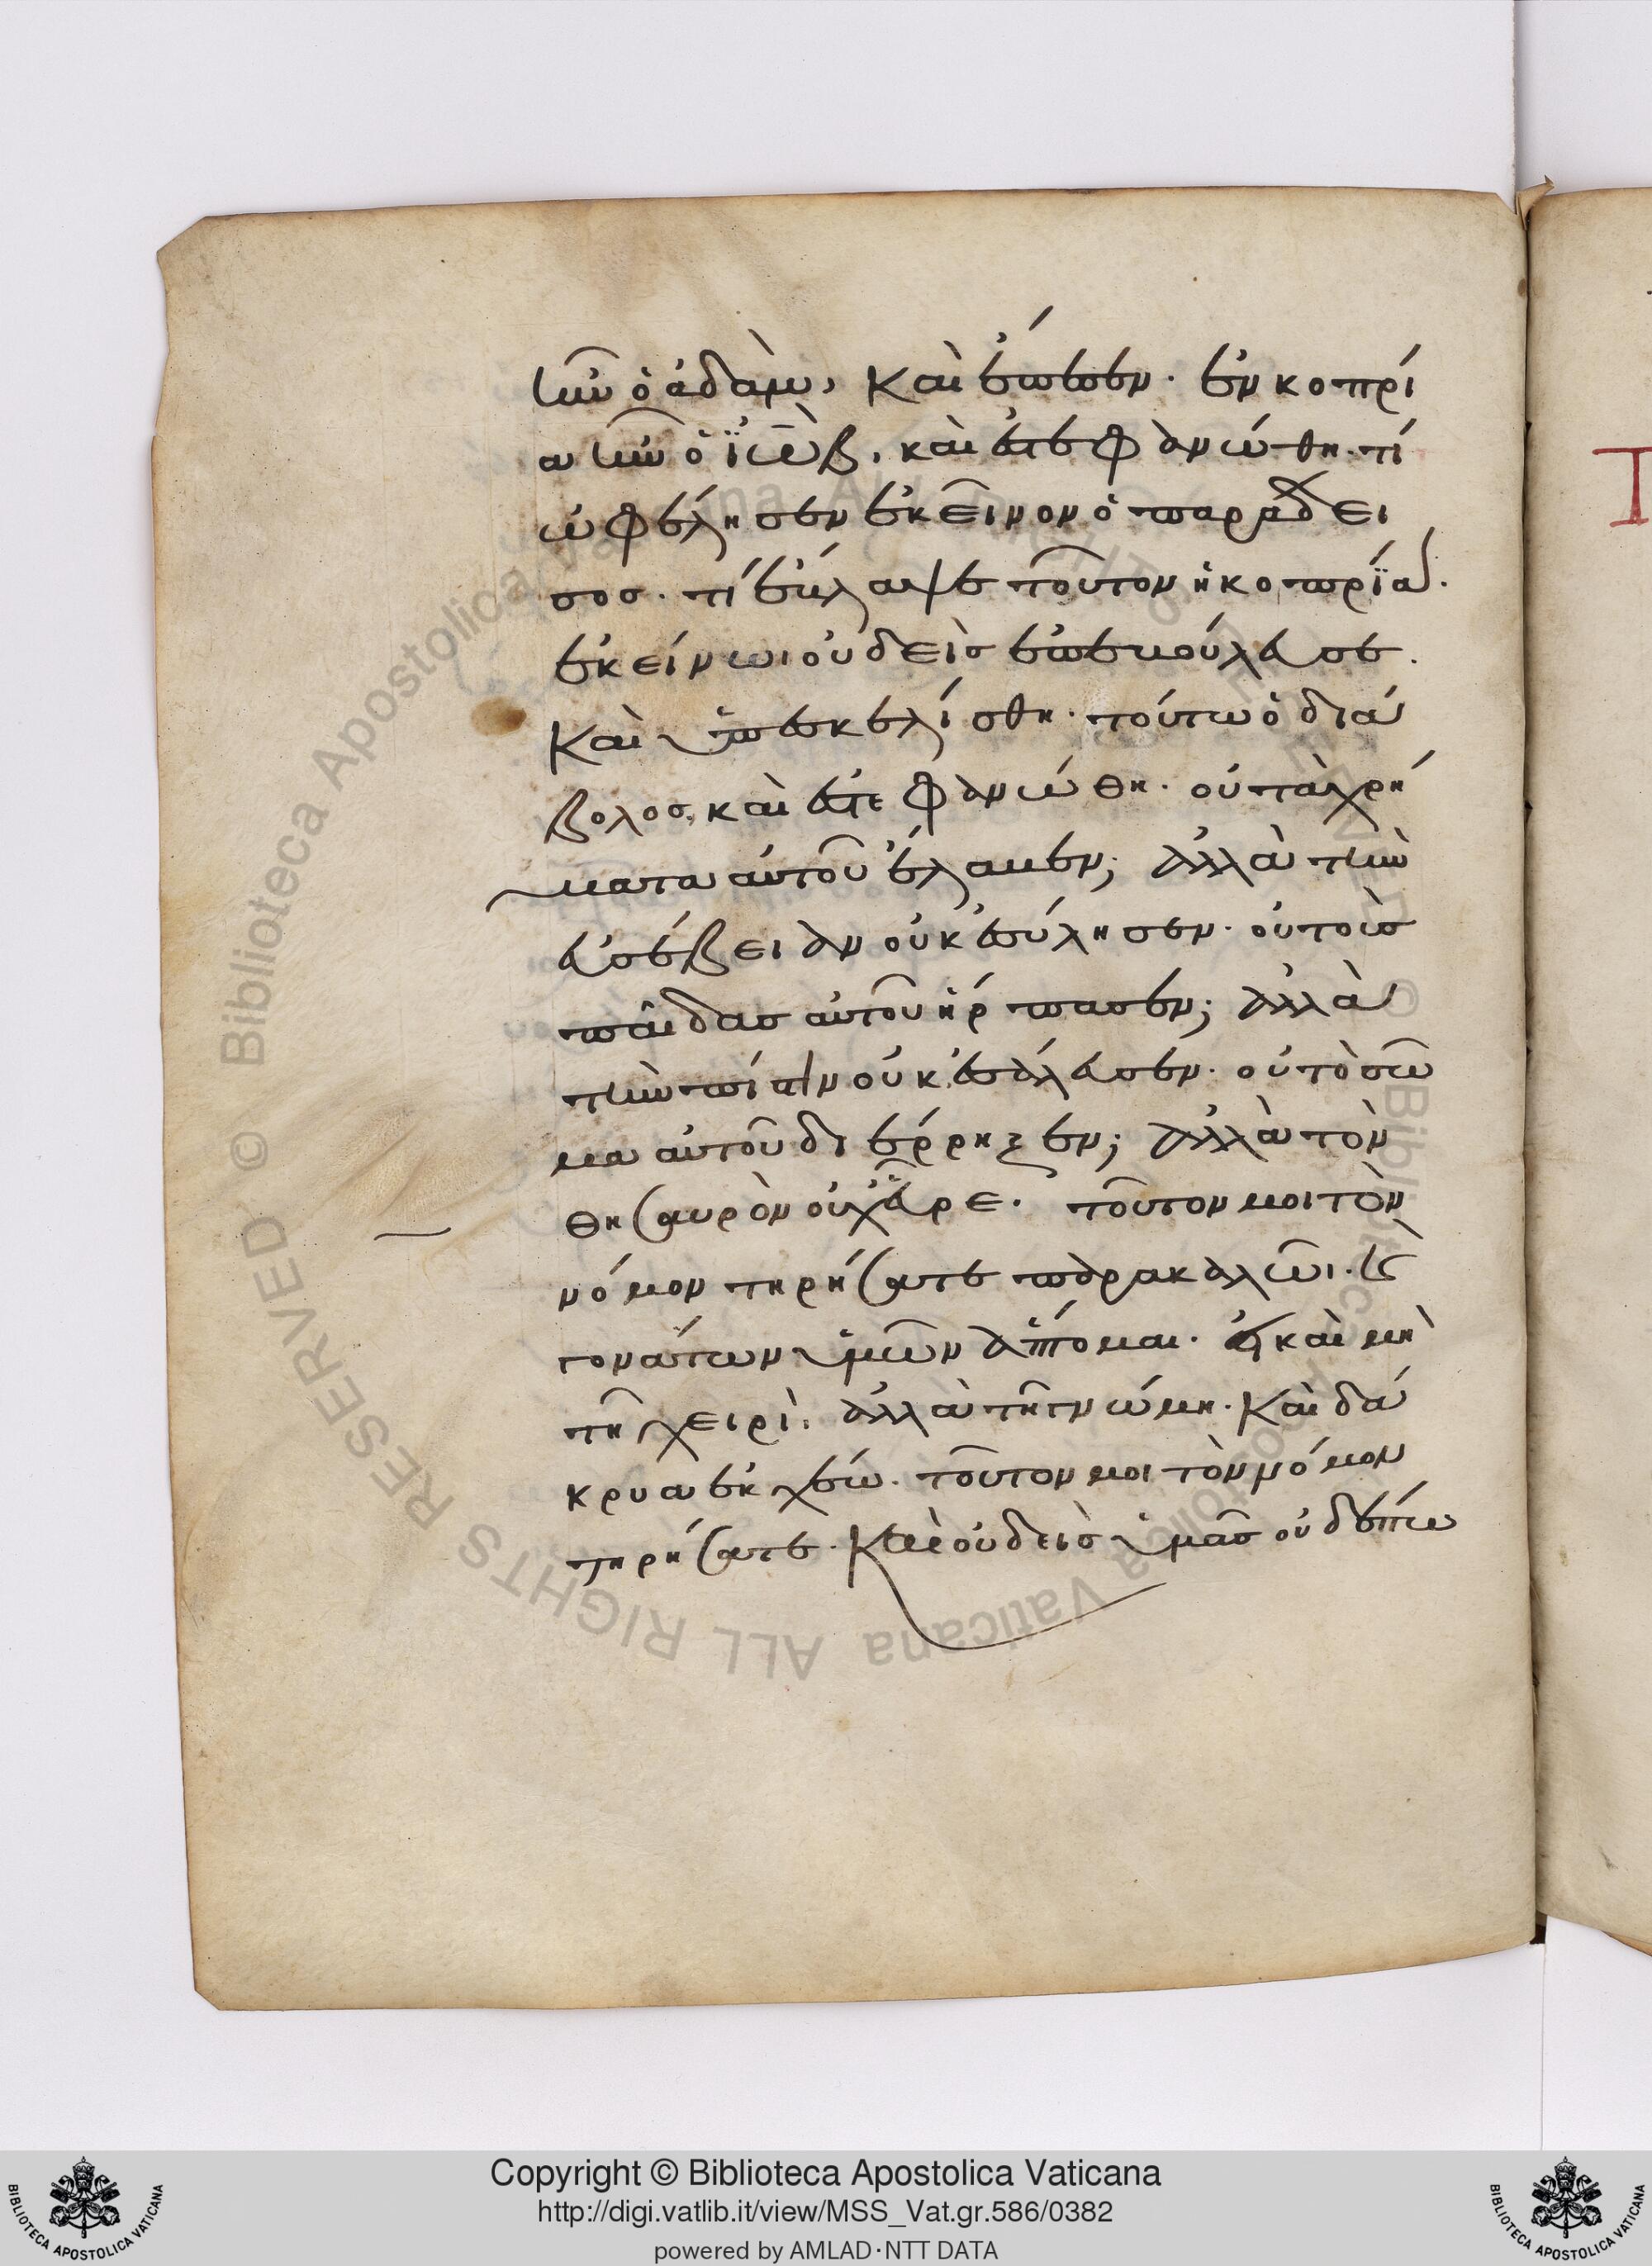 ἦν ὁ ἀδὰμ, καὶ ἔπεσεν. ἐν κοπρί
α ἦν ὁ ϊὼβ, καὶ ἐστεφανώθη. τί
ὠφέλησεν ἐκεῖνον ὁ παράδει
σος. τί ἔβλαψε τοῦτον ἡ κοπρία.
ἐκείνωι οὐδεὶς ἐπεβούλευσε.
καὶ ὑπεσκελίσθη. τούτω ὁ διά
βολος, καὶ ἐστεφανώθη. οὐ τὰ χρή
ματα αὐτοῦ ἔλαβεν; ἀλλὰ τὴν
εὐσέβειαν οὐκ ἐσύλησεν. οὐ τοὺς
παῖδας αὐτοῦ ἥρπασεν; ἀλλὰ
τὴν πίστιν οὐκ ἐσάλευσεν. οὐ τὸ σῶ
μα αὐτοῦ διέρρηξεν; ἀλλὰ τὸν
θησαυρὸν οὐχ εὗρε. τοῦτον μοι τὸν
νόμον τηρήσατε παρακαλῶι. καὶ
γονάτων ὑμῶν ἅπτομαι. εἰ καὶ μὴ
τῆ χειρὶ, ἀλλὰ τῆ γνώμη. καὶ δά
κρυα ἐκχέω. τοῦτον μοι τὸν νόμον
τηρήσατε. καὶ οὐδεὶς ὑμᾶς οὐδέπω
Copyright © Biblioteca Apostolica Vaticana
http://digi.vatlib.it/view/MSS_Vat.gr.586/0382
powered by AMLAD·NTT DATA
BIBLIOTECA APOSTOLICA VATICANA
BIBLIOTECA APOSTOLICA VATICANA